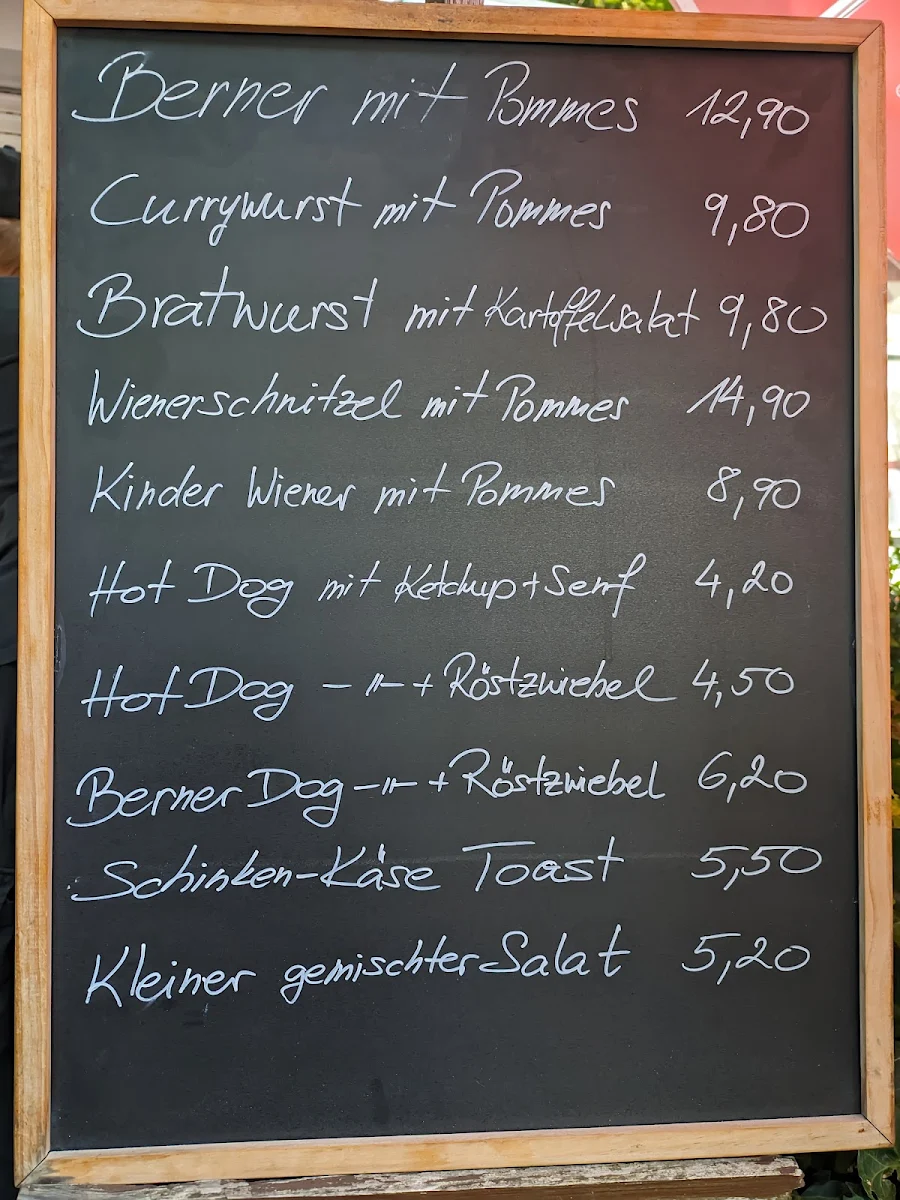 Berner mit Pommes 12,90
Currywurst mit Pommes 9,80
Bratwurst mit Kartoffelsalat 9,80
Wienerschnitzel mit Pommes 14,90
Kinder Wiener mit Pommes 8,90
Hot Dog mit Ketchup + Senf 4,20
Hot Dog -"- + Röstzwiebel 4,50
Berner Dog -"- + Röstzwiebel 6,20
Schinken-Käse Toast 5,50
Kleiner gemischter Salat 5,20